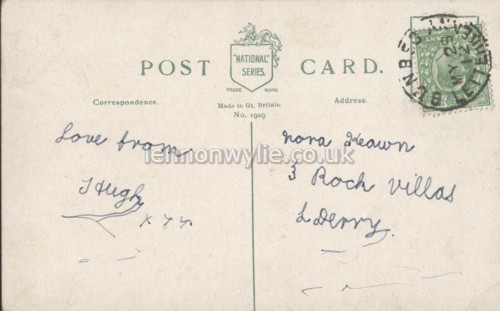 "NATIONAL"
SERIES.
POST CARD.
TRADE MARK
Correspondence.
Made in Gt. Britain.
Address.
No. 1929
Love from
Hugh
x x x
Nora Keawn
3 Rock Villas
L Derry.
lennonwylie.co.uk